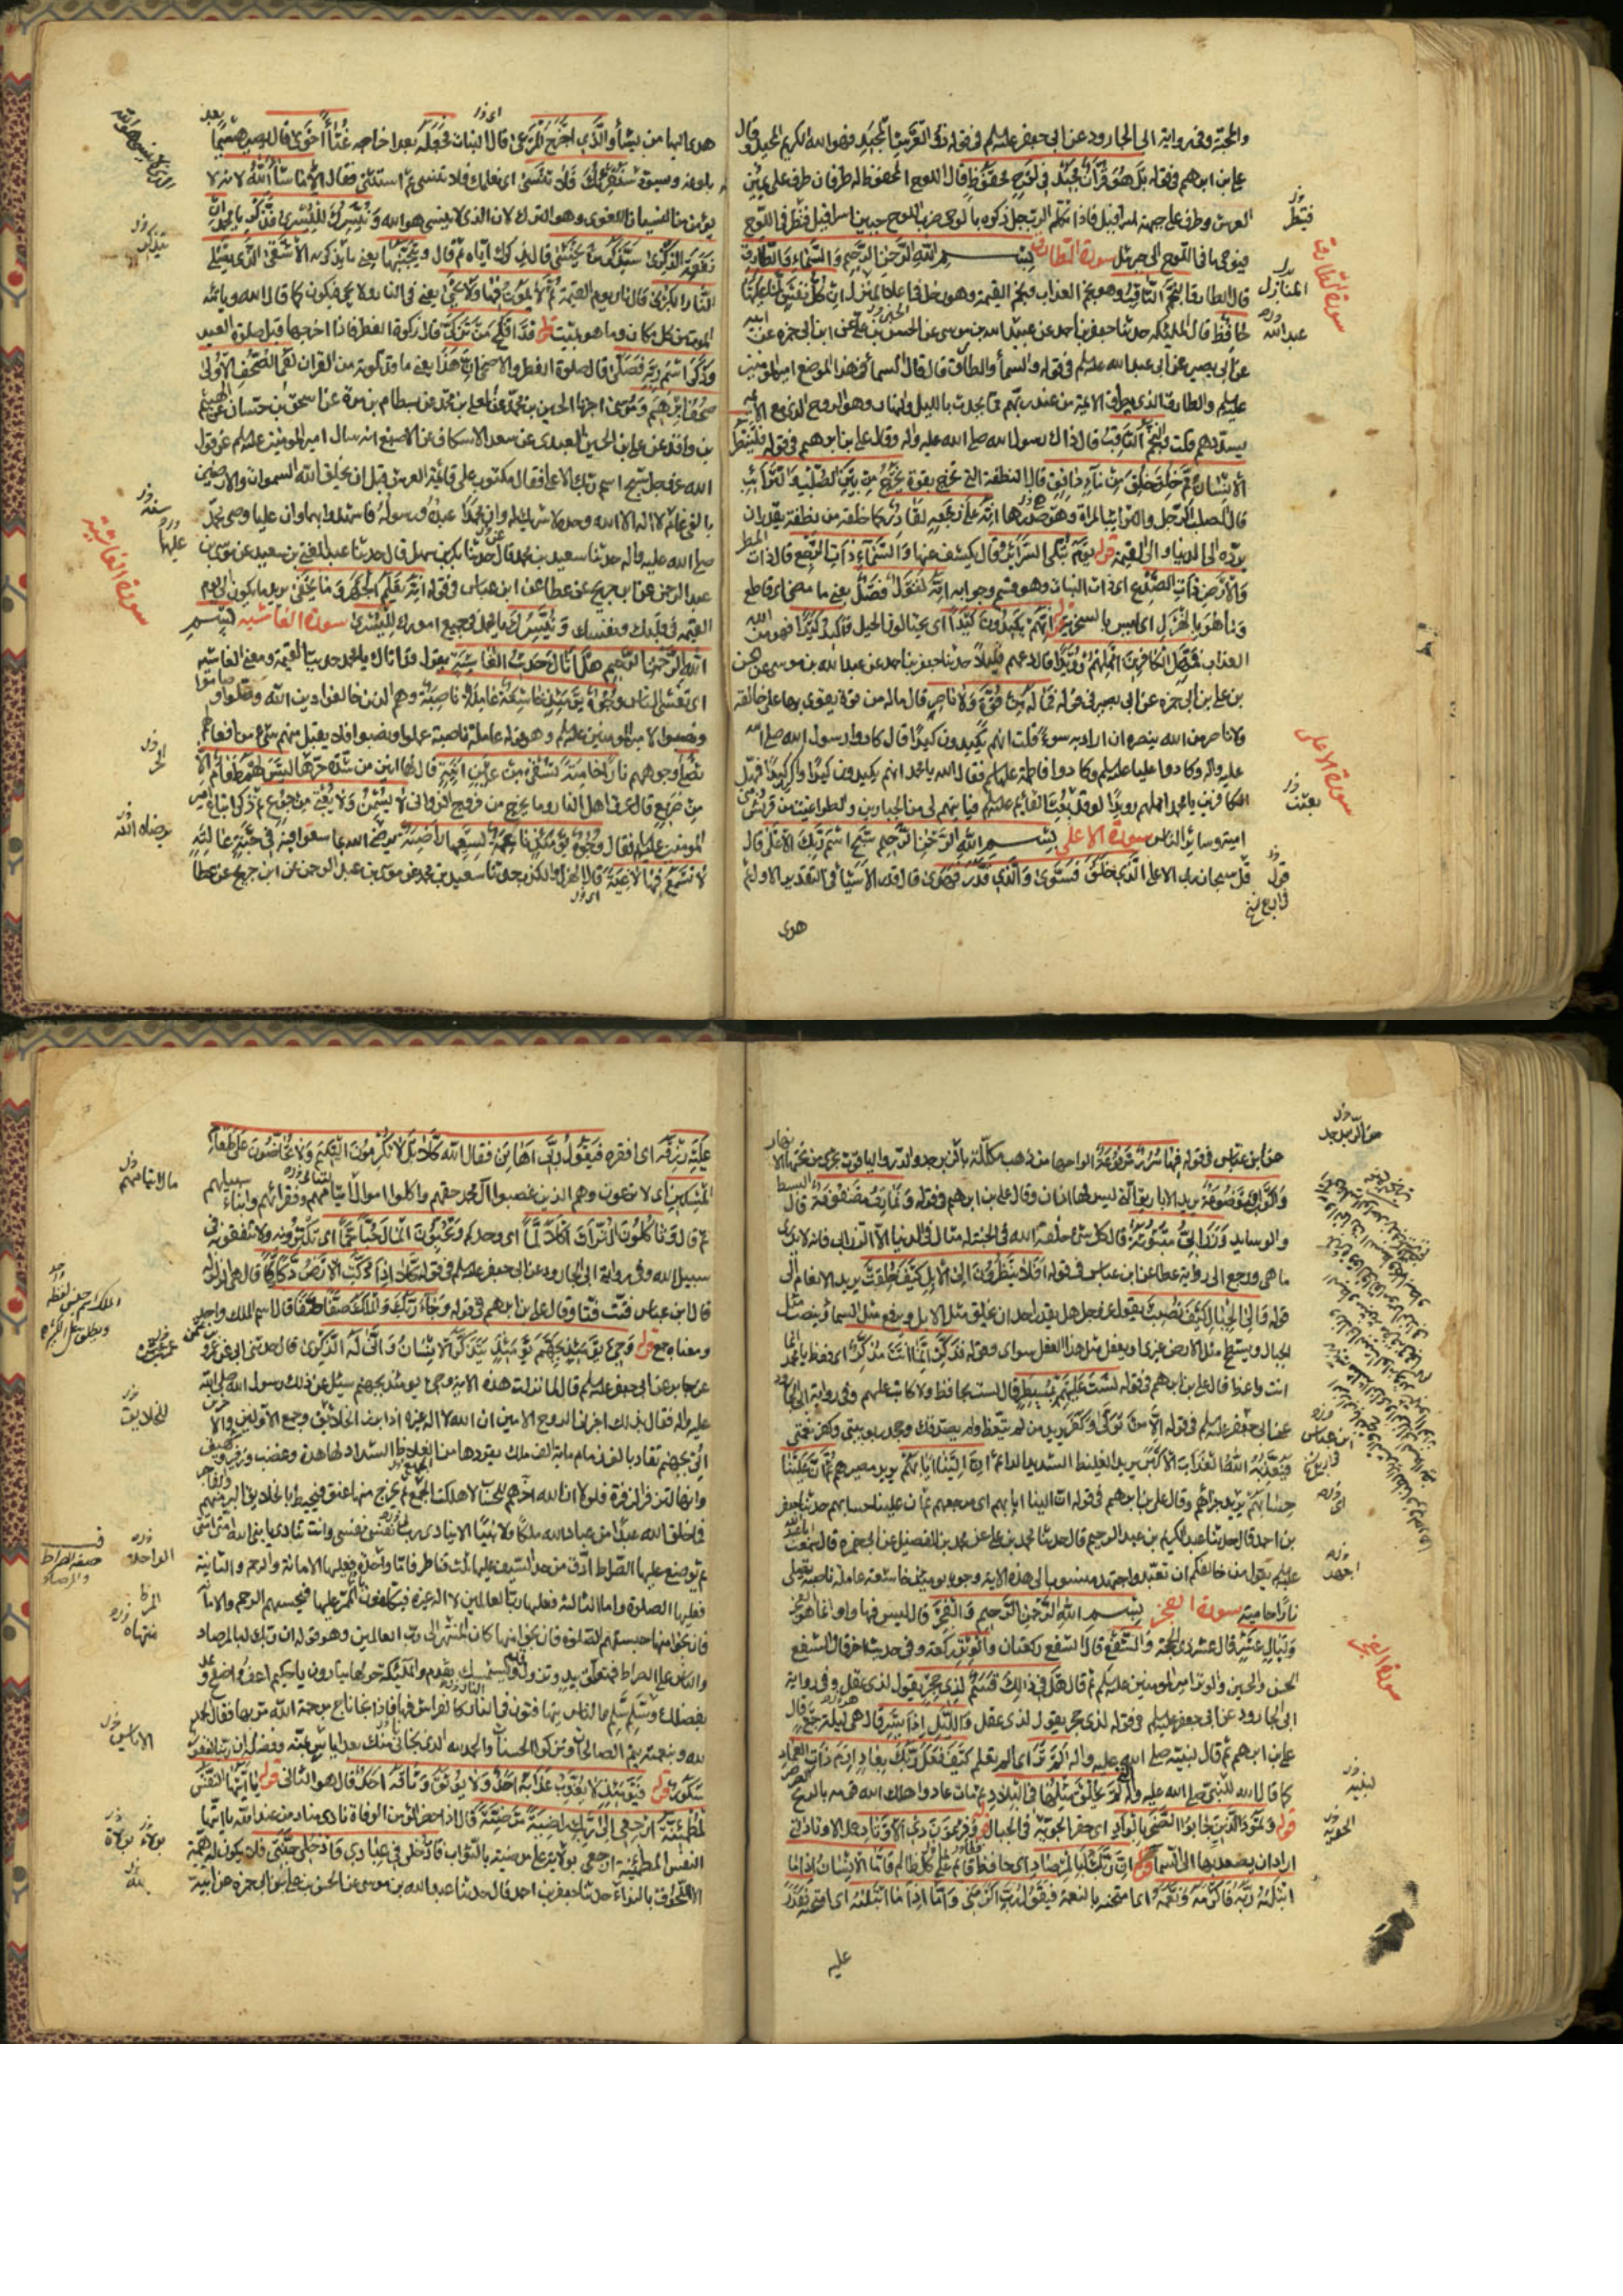 والجنة وفي رواية ابي الجارود عن ابي جعفر عليلم في قوله ذو العرش المجيد فهو الله الكريم المجيد وقال
علي بن ابرهيم في قوله بَلْ هُوَ قُرْآنٌ مَجِيدٌ فِي لَوْحٍ مَحْفُوظٍ قال اللوح المحفوظ له طرفان طرف على يمين
العرش وطرف على جبهة اسرافيل فاذا تكلم الرب جل ذكره بالوحي ضرب اللوح جبين اسرافيل فنظر في اللوح
فيوحي بما في اللوح الى جبرئيل سورة الطارق بسم الله الرحمن الرحيم وَالسَّمَاءِ وَالطَّارِقِ
قال الطارق النَّجْمُ الثَّاقِبُ وهو نجم العذاب ونجم القيمة وهو زحل في اعلا المنزل اِنْ كُلُّ نَفْسٍ لَمَّا عَلَيْهَا
حَافِظٌ قال الملئكه حدثنا جعفر بن احمد عن عبيد الله بن موسى عن الحسن بن علي عن ابن ابي حمزه عن ابيه
عن ابي بصير عن ابي عبد الله عليلم في قوله والسمآء والطارق قال قال السمآء في هذا الموضع امير المومنين
عليلم والطارق الذي يطرق الائمة من عند ربهم مما يحدث بالليل والنهار وهو الروح الذي مع الائمه
يسددهم قلت والنَّجْمُ الثَّاقِبُ قال ذاك رسول الله صلى الله عليه واله وقال علي بن ابرهيم في قوله فَلْيَنْظُرِ
الْاِنْسَانُ مِمَّ خُلِقَ خُلِقَ مِنْ مَآءٍ دَافِقٍ قال النطفة التي تخرج بقوة يَخْرُجُ مِنْ بَيْنِ الصُّلْبِ وَالتَّرَآئِبِ
قال الصلب الرجل والترائب المراة وهو صدرها اِنَّهُ عَلَى رَجْعِهِ لَقَادِرٌ كما خلقه من نطفة يقدر ان
يرده الى الدنيا والى القيمة قوله يَوْمَ تُبْلَى السَّرَآئِرُ قال يكشف عنها وَالسَّمَآءِ ذَاتِ الرَّجْعِ قال ذات المطر
وَالْاَرْضِ ذَاتِ الصَّدْعِ اي ذات النبات وهو قسم وجوابه اِنَّهُ لَقَوْلٌ فَصْلٌ يعني ما مضى اي قاطع
وَمَا هُوَ بِالْهَزْلِ اي ليس بالسخرية اِنَّهُمْ يَكِيدُونَ كَيْدًا اي يحتالون الحيل وَاَكِيدُ كَيْدًا فهو من الله
العذاب فَمَهِّلِ الْكَافِرِينَ اَمْهِلْهُمْ رُوَيْدًا قال دعهم قليلاً حدثنا جعفر بن احمد عن عبد الله بن موسى عن الحسن
بن علي بن ابي حمزه عن ابي بصير في قوله فَمَا لَهُ مِنْ قُوَّةٍ وَلَا نَاصِرٍ قال ماله من قوة يقوى بها على خالقه
ولا ناصر من الله ينصره ان اراد به سوءً قلت انهم يكيدون كيدًا قال كادوا رسول الله صلى الله
عليه واله وكادوا عليا عليلم وكادوا فاطمة عليهاسلم فقال الله يا محمد انهم يكيدون كيدًا واكيد كيدًا فمهل
الكافرين يا محمد امهلهم رويدًا لو قد بعث القائم عليلم فينتقم لي من الجبارين والطواغيت من قريش
وبني امية وساير الناس سورة الاعلى بسم الله الرحمن الرحيم سَبِّحِ اسْمَ رَبِّكَ الْاَعْلَى قال
قل سبحان ربي الاعلى الَّذِي خَلَقَ فَسَوَّى وَالَّذِي قَدَّرَ فَهَدَى قال قدر الاشيآء في التقدير الاول ثم
هدى
فينظر
سورة الطارق
المنازل
عبد الله
سورة الاعلى
بعثت
قوله
هدى اليها من يشآء وَالَّذِي اَخْرَجَ الْمَرْعَى قال النبات فَجَعَلَهُ بعد اخراجه غُثَآءً اَحْوَى قال يصير هشيمًا بعد
بلوغه ويسود سَنُقْرِئُكَ فَلَا تَنْسَى اي نعلمك فلا تنسى ثم استثنى فقال اِلَّا مَا شَآءَ اللهُ لانه لا
يؤمن من النسيان اللغوي وهو الترك لان الذي لا ينسى هو الله وَنُيَسِّرُكَ لِلْيُسْرَى فَذَكِّرْ يا محمد اِنْ
نَفَعَتِ الذِّكْرَى سَيَذَّكَّرُ مَنْ يَخْشَى قال بذكرك اياه ثم قال وَيَتَجَنَّبُهَا يعني ما يذكر به الْاَشْقَى الَّذِي يَصْلَى
النَّارَ الْكُبْرَى قال نار يوم القيمة ثُمَّ لَا يَمُوتُ فِيهَا وَلَا يَحْيَى يعني في النار ولا يحيى فيكون كما قال الله وياتيه
الموت من كل مكان وما هو بميت قوله قَدْ اَفْلَحَ مَنْ تَزَكَّى قال زكوة الفطر فاذا اخرجها قبل صلوة العيد
وَذَكَرَ اسْمَ رَبِّهِ فَصَلَّى قال صلوة الفطر والاضحى اِنَّ هَذَا يعني ما قد تلوته من القران لَفِي الصُّحُفِ الْاُولَى
صُحُفِ اِبْرَهِيمَ وَمُوسَى اخبرنا الحسين بن محمد عن معلى بن محمد عن بسطام بن مرة عن اسحق بن حسان عن الهيثم
بن واقد عن علي بن الحسين العبدي عن سعد الاسكاف عن الاصبغ انه سال امير المومنين عليلم عن قول
الله عز وجل سبح اسم ربك الاعلى فقال مكتوب على قائمة العرش قبل ان يخلق الله السموات والارضين
بالفي عام لا اله الا الله وحده لا شريك له وان محمدًا عبده ورسوله فاشهدوا بهما وان عليا وصي محمد
صلى الله عليه واله حدثنا سعيد بن محمد قال حدثنا بكر بن سهل قال حدثنا عبد الغني بن سعيد عن موسى بن
عبد الرحمن عن ابن جريج عن عطا عن ابن عباس في قوله اِنَّهُ يَعْلَمُ الْجَهْرَ وَمَا يَخْفَى يريد ما يكون الى يوم
القيمة في قلبك ونفسك وَنُيَسِّرُكَ يا محمد في جميع امورك لِلْيُسْرَى سورة الغاشيه بسم
الله الرحمن الرحيم هَلْ اَتَاكَ حَدِيثُ الْغَاشِيَةِ يقول قد اتاك يا محمد حديث القيمة ومعنى الغاشيه
اي تغشى الناس وُجُوهٌ يَوْمَئِذٍ خَاشِعَةٌ عَامِلَةٌ نَاصِبَةٌ وهم الذين خالفوا دين الله وصلوا وصاموا
ونصبوا لامير المومنين عليلم وهو قوله عاملة ناصبة عملوا ونصبوا فلا يقبل منهم شيء من افعالهم
تَصْلَى وجوههم نَارًا حَامِيَةً تُسْقَى مِنْ عَيْنٍ اٰنِيَةٍ قال لها انين من شدة حرها لَيْسَ لَهُمْ طَعَامٌ اِلَّا
مِنْ ضَرِيعٍ قال عرق اهل النار وما يخرج من فروج الزواني لَا يُسْمِنُ وَلَا يُغْنِي مِنْ جُوعٍ ثم ذكر اتباع امير
المومنين عليلم فقال وُجُوهٌ يَوْمَئِذٍ نَاعِمَةٌ لِسَعْيِهَا رَاضِيَةٌ يرضى الله بما سعوا فيه فِي جَنَّةٍ عَالِيَةٍ
لَا تَسْمَعُ فِيهَا لَاغِيَةً قال الهزل والكذب حدثنا سعيد بن محمد عن موسى بن عبد الرحمن عن ابن جريج عن عطا
سيذكر
عليها
سورة الغاشية
رضاه الله
عن ابن عباس في قوله فِيهَا سُرُرٌ مَرْفُوعَةٌ الواحها من ذهب مكللة بالزبرجد والدر والياقوت تجري من تحتها الانهار
وَاَكْوَابٌ مَوْضُوعَةٌ يريد الاباريق التي ليس لها اذان وقال علي بن ابرهيم في قوله وَنَمَارِقُ مَصْفُوفَةٌ قال البسط
والوسايد وَزَرَابِيُّ مَبْثُوثَةٌ قال كل شيء خلقه الله في الجنة له مثال في الدنيا الا الزرابي فانه لا يدرى
ما هي ورجع الى رواية عطا عن ابن عباس في قوله اَفَلَا يَنْظُرُونَ اِلَى الْاِبِلِ كَيْفَ خُلِقَتْ يريد الانعام الى
قوله وَاِلَى الْجِبَالِ كَيْفَ نُصِبَتْ يقول عز وجل هل يقدر احد ان يخلق مثل الابل ويرفع مثل السمآء وينصب مثل
الجبال ويسطح مثل الارض غيري او يفعل مثل هذا الفعل سواي وقوله فَذَكِّرْ اِنَّمَا اَنْتَ مُذَكِّرٌ اي فعظ يا محمد انما
انت واعظ قال علي بن ابرهيم في قوله لَسْتَ عَلَيْهِمْ بِمُصَيْطِرٍ قال لست بحافظ ولا كاتب عليهم وفي رواية ابي الجارود
عن ابي جعفر عليلم في قوله اِلَّا مَنْ تَوَلَّى وَكَفَرَ يريد من لم يتعظ ولم يصدقك وجحد ربوبيتي وكفر نعمتي
فَيُعَذِّبُهُ اللهُ الْعَذَابَ الْاَكْبَرَ يريد الغليظ الشديد الدائم اِنَّ اِلَيْنَا اِيَابَهُمْ يريد مصيرهم ثُمَّ اِنَّ عَلَيْنَا
حِسَابَهُمْ يريد جزاهم وقال علي بن ابرهيم في قوله ان الينا ايابهم اي مرجعهم ثم ان علينا حسابهم حدثنا جعفر
بن احمد قال حدثنا عبد الكريم بن عبد الرحيم قال حدثنا محمد بن علي عن محمد بن الفضيل عن ابي حمزه قال سمعت ابا عبد الله
عليلم يقول من خالفكم ان تعبد واجتهد منسوب الى هذه الاية وجوه يومئذ خاشعة عاملة ناصبة تصلى
نارا حاميه سورة الفجر بسم الله الرحمن الرحيم وَالْفَجْرِ قال ليس فيها واو انما هو الفجر
وَلَيَالٍ عَشْرٍ قال عشر ذي الحجة وَالشَّفْعِ قال الشفع ركعتان وَالْوَتْرِ ركعة وفي حديث اخر قال الشفع
الحسن والحسين والوتر امير المومنين عليلم ثم قال هَلْ فِي ذَلِكَ قَسَمٌ لِذِي حِجْرٍ يقول لذي عقل وفي رواية
ابي الجارود عن ابي جعفر عليلم في قوله لذي حجر يقول لذي عقل وَاللَّيْلِ اِذَا يَسْرِ قال هي ليلة جمع وقال
علي بن ابرهيم ثم قال لنبيه صلى الله عليه واله اَلَمْ تَرَ اي الم تعلم كَيْفَ فَعَلَ رَبُّكَ بِعَادٍ اِرَمَ ذَاتِ الْعِمَادِ
كما قال الله للنبي صلى الله عليه واله الَّتِي لَمْ يُخْلَقْ مِثْلُهَا فِي الْبِلَادِ ثم مات عاد واهلك الله قومه بالريح الصرصر
قوله وَثَمُودَ الَّذِينَ جَابُوا الصَّخْرَ بِالْوَادِ اي حفروا الجوبة في الجبال قوله وَفِرْعَوْنَ ذِي الْاَوْتَادِ عمل الاوتاد التي
اراد ان يصعد بها الى السمآء قوله اِنَّ رَبَّكَ لَبِالْمِرْصَادِ اي حافظ قائم على كل ظالم فَاَمَّا الْاِنْسَانُ اِذَا مَا
ابْتَلَاهُ رَبُّهُ فَاَكْرَمَهُ وَنَعَّمَهُ اي امتحنه بالنعمة فَيَقُولُ رَبِّي اَكْرَمَنِ وَاَمَّا اِذَا مَا ابْتَلَاهُ اي امتحنه فَقَدَرَ
عليه
ابن عباس
اجتهد
سورة الفجر
لنبيه
الجوبة
عَلَيْهِ رِزْقَهُ اي افقره فَيَقُولُ رَبِّي اَهَانَنِ فقال الله كَلَّا بَلْ لَا تُكْرِمُونَ الْيَتِيمَ وَلَا تَحَاضُّونَ عَلَى طَعَامِ
الْمِسْكِينِ اي لا تدعون وهم الذين غصبوا آل محمد حقهم واكلوا اموال يتاماهم وفقرائهم وابناء سبيلهم
ثم قال وَتَاْكُلُونَ التُّرَاثَ اَكْلًا لَمًّا اي وحدكم وَتُحِبُّونَ الْمَالَ حُبًّا جَمًّا اي تكنزونه ولا تنفقونه في
سبيل الله وفي رواية ابي الجارود عن ابي جعفر عليلم في قوله كَلَّا اِذَا دُكَّتِ الْاَرْضُ دَكًّا دَكًّا قال هي الزلزلة
قال ابن عباس فتت فتا وقال علي بن ابرهيم في قوله وَجَآءَ رَبُّكَ وَالْمَلَكُ صَفًّا صَفًّا قال اسم الملك واحد
ومعناه جمع قوله وَجِيءَ يَوْمَئِذٍ بِجَهَنَّمَ يَوْمَئِذٍ يَتَذَكَّرُ الْاِنْسَانُ وَاَنَّى لَهُ الذِّكْرَى قال حدثني ابي عن عمرو
عن جابر عن ابي جعفر عليلم قال لما نزلت هذه الاية وجيء يومئذ بجهنم سئل عن ذلك رسول الله صلى الله
عليه واله فقال بذلك اخبرني الروح الامين ان الله لا اله غيره اذا برز الخلائق وجمع الاولين والاخرين
اتى بجهنم تقاد بالف زمام مائة الف ملك يقودها من الغلاظ الشداد لها هدة وغضب وزفير وشهيق
وانها لتزفر الزفرة فلولا ان الله اخرهم للحساب لاهلكت الجميع ثم يخرج منها عنق فيحيط بالخلايق البر منهم والفاجر
فما خلق الله عبدًا من عباد الله ملكًا ولا نبيًا الا ينادي رب نفسي نفسي وانت تنادي يا نبي الله امتي امتي
ثم يوضع عليها الصراط ادق من حد السيف عليها ثلث قناطر فاما واحدة فعليها الامانة والرحم والثانية
فعليها الصلوة واما الثالثة فعليها رب العالمين لا اله غيره فيكلفون الممر عليها فيحبسهم الرحم والامانة
فان نجوا منها حبستهم الصلوة فان نجوا منها كان المنتهى الى رب العالمين وهو قوله ان ربك لبالمرصاد
والناس على الصراط فمتعلق بيد وتزول قدم ويستمسك بقدم والملئكة حولها ينادون يا حليم اعف واصفح وعد
بفضلك وسلم سلم والناس يتهافتون في النار كالفراش فيها فاذا نجا ناج برحمة الله مر بها فقال الحمد
لله وبنعمته يتم الصالحات وتزكوا الحسنات والحمد لله الذي نجاني منك بعد اياس بمنه وفضله ان ربنا لغفور
شكور قوله فَيَوْمَئِذٍ لَا يُعَذِّبُ عَذَابَهُ اَحَدٌ وَلَا يُوثِقُ وَثَاقَهُ اَحَدٌ قال هو الثاني قوله يَا اَيَّتُهَا النَّفْسُ
الْمُطْمَئِنَّةُ ارْجِعِي اِلَى رَبِّكِ رَاضِيَةً مَرْضِيَّةً قال اذا حضر المؤمن الوفاة نادى مناد من عند الله يا ايتها
النفس المطمئنة ارجعي بولاية علي مرضية بالثواب فَادْخُلِي فِي عِبَادِي وَادْخُلِي جَنَّتِي فلا يكون له همة
الا اللحوق بالنداء حدثنا جعفر بن احمد قال حدثنا عبد الله بن موسى عن الحسن بن علي بن ابي حمزه عن ابيه
للخلايق
الواحدة
صفة الصراط والمرصاد
منتهاه
الاناس